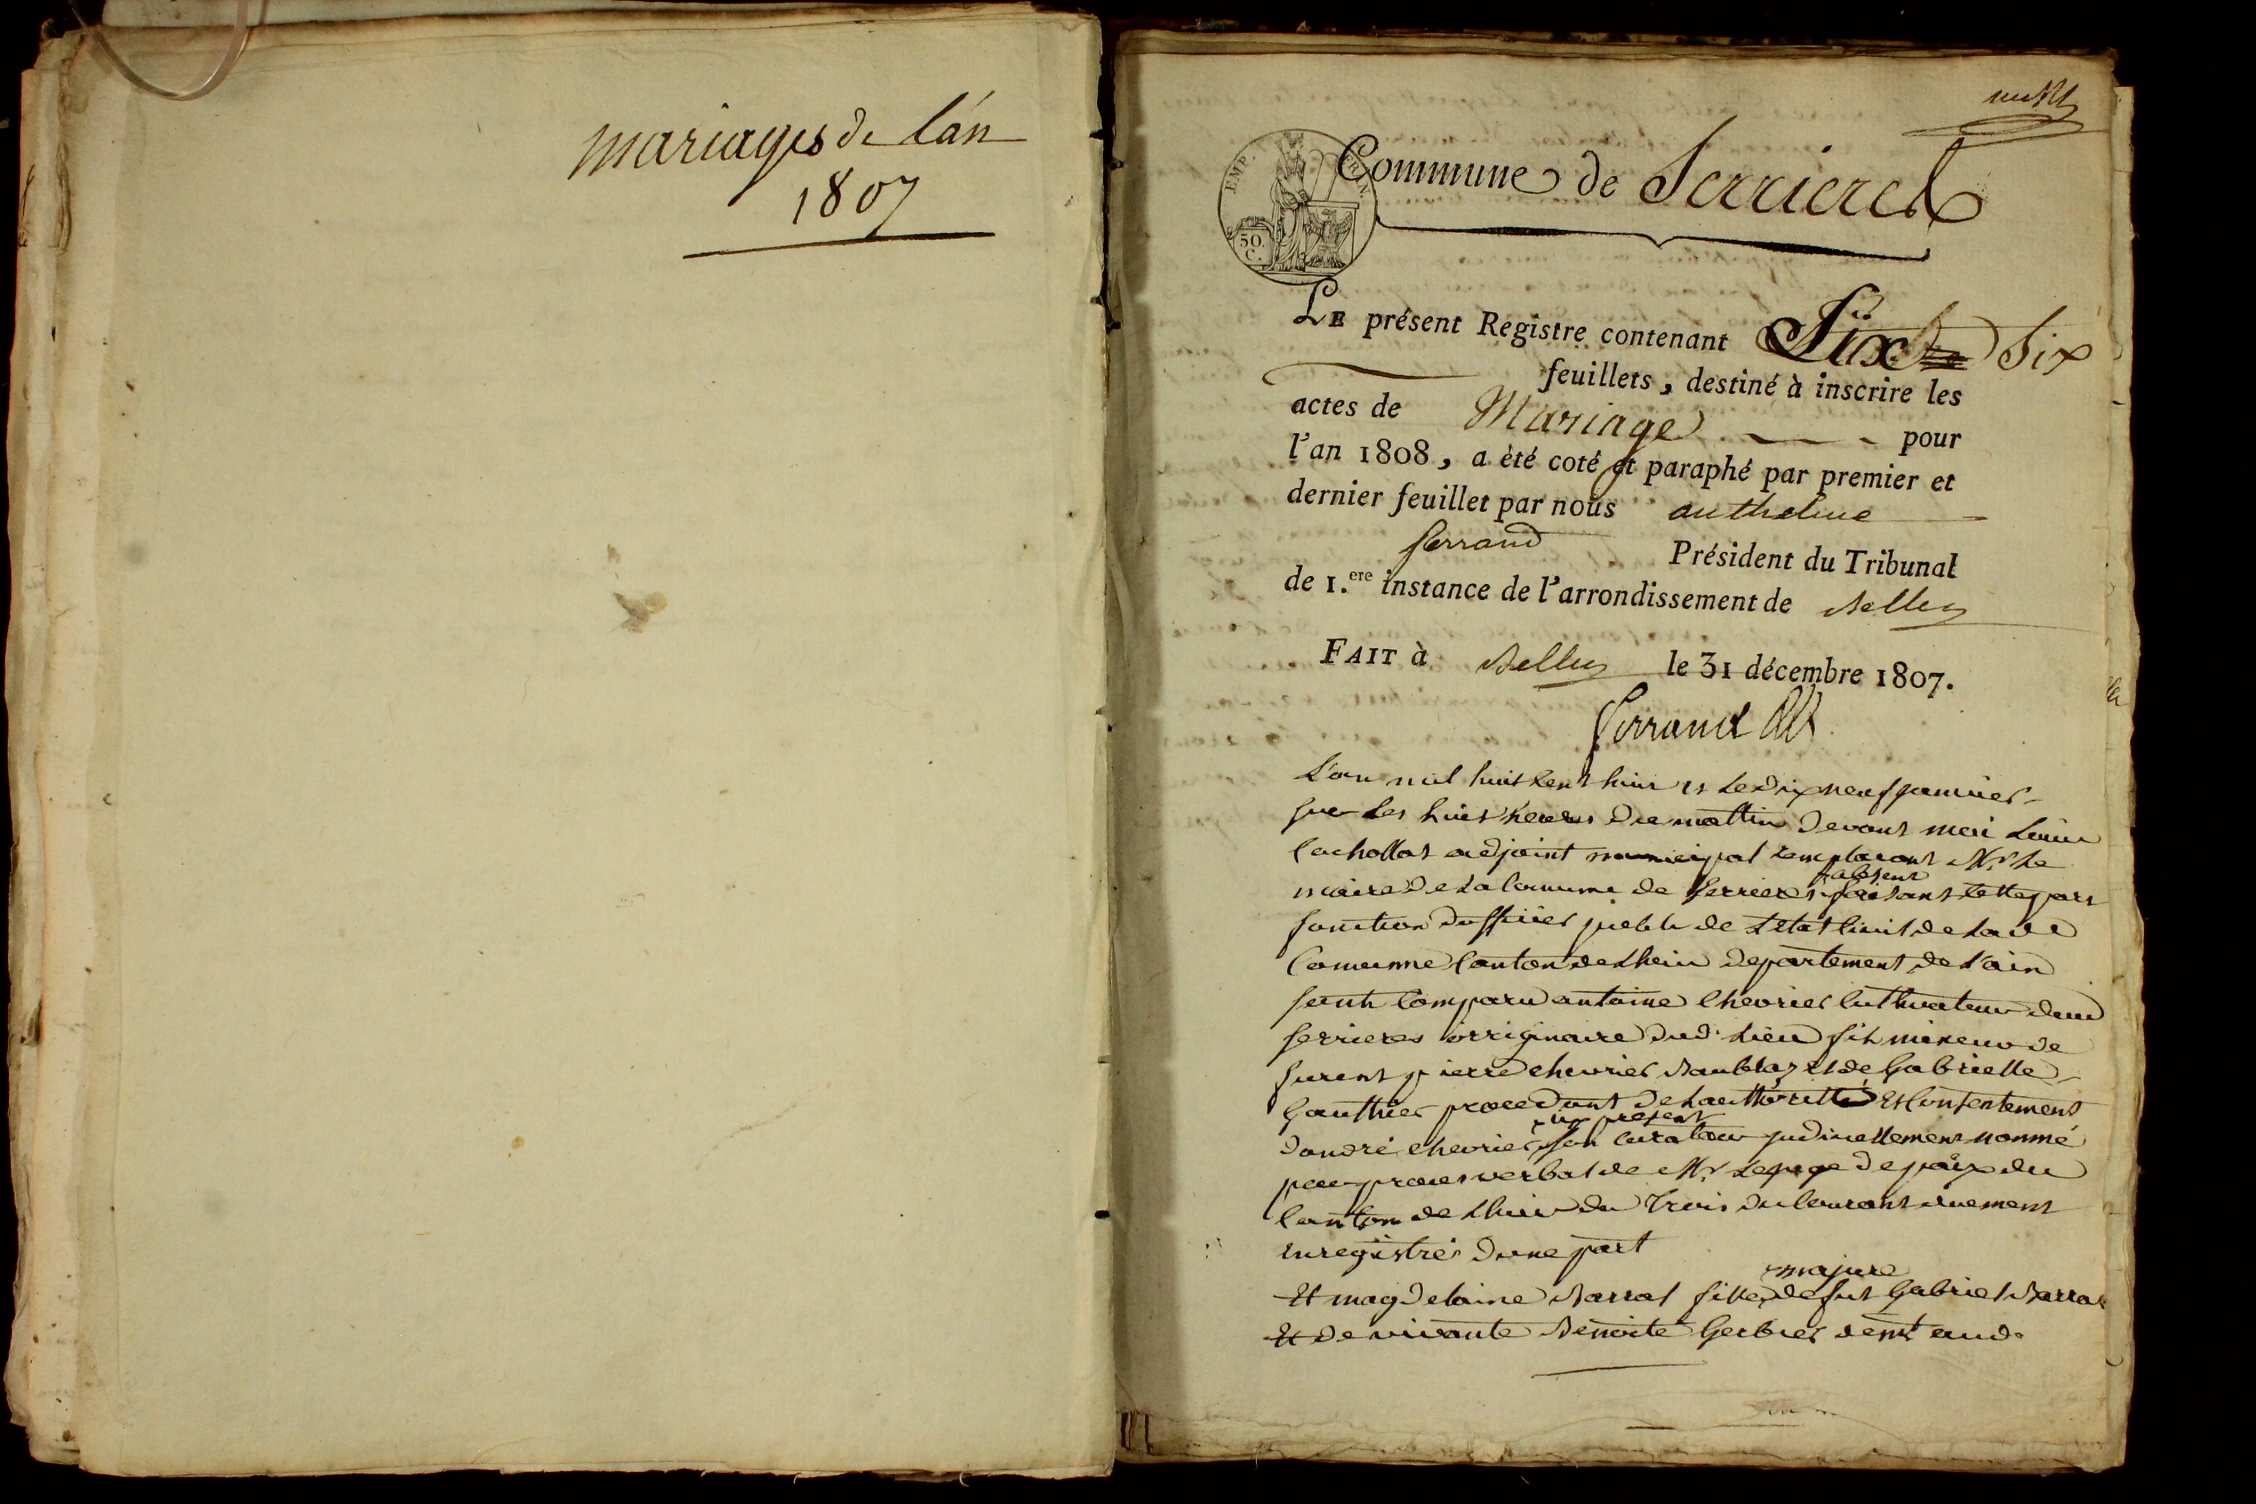 mariages de l'an
1807
EMP. FRAN.
50.
C.
Commune de Serrieres
LE présent Registre contenant Six Six
feuillets, destiné à inscrire les
actes de Mariage pour
l'an 1808, a été coté et paraphé par premier et
dernier feuillet par nous anthelme
ferrand Président du Tribunal
de 1.ere instance de l'arrondissement de Belley
FAIT à Belley le 31 décembre 1807.
ferrand
L'an mil huit cent huit et le dix neuf janvier
sur les huit heures du mattin devant moi
Cachollat adjoint municipal remplacant Mr. le
maire de la Comune de Serrieres absent faisant cette part
fonction dofficier public de l'etat civil de la de
Comunne Canton de Lhuis departement de l'ain
sont Comparu antoine Chevrier Cultivateur audit
serrieres originaire dud. Lieu fils mineur de
furent pierre chevrier et de Gabrielle
Gauthier procedant de lauttoritté et Consentement
dandré chevrier ici present son Curateur judiciellement nommé
par proces verbal de Mr. le juge de paix du
Canton de Lhuis du trois du Courant duement
enregistré dune part
Et magdelaine Barral fille majure de fut Gabriel Barral
Et de vivante Benoite Gerbier demt aud.